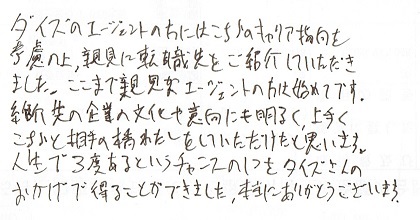 ダイズのエージェントの方にはこちらのキャリア指向を
考慮の上、親見に転職先をご紹介していただき
ました。ここまで親見なエージェントの方は始めてです。
紹介先の企業の文化や意向にも明るく、上手く
こちらと相手の橋わたしをしていただけたと思います。
人生で3度あるというチャンスの1つをタイズさんの
おかげで得ることができました、本当にありがとうございます。